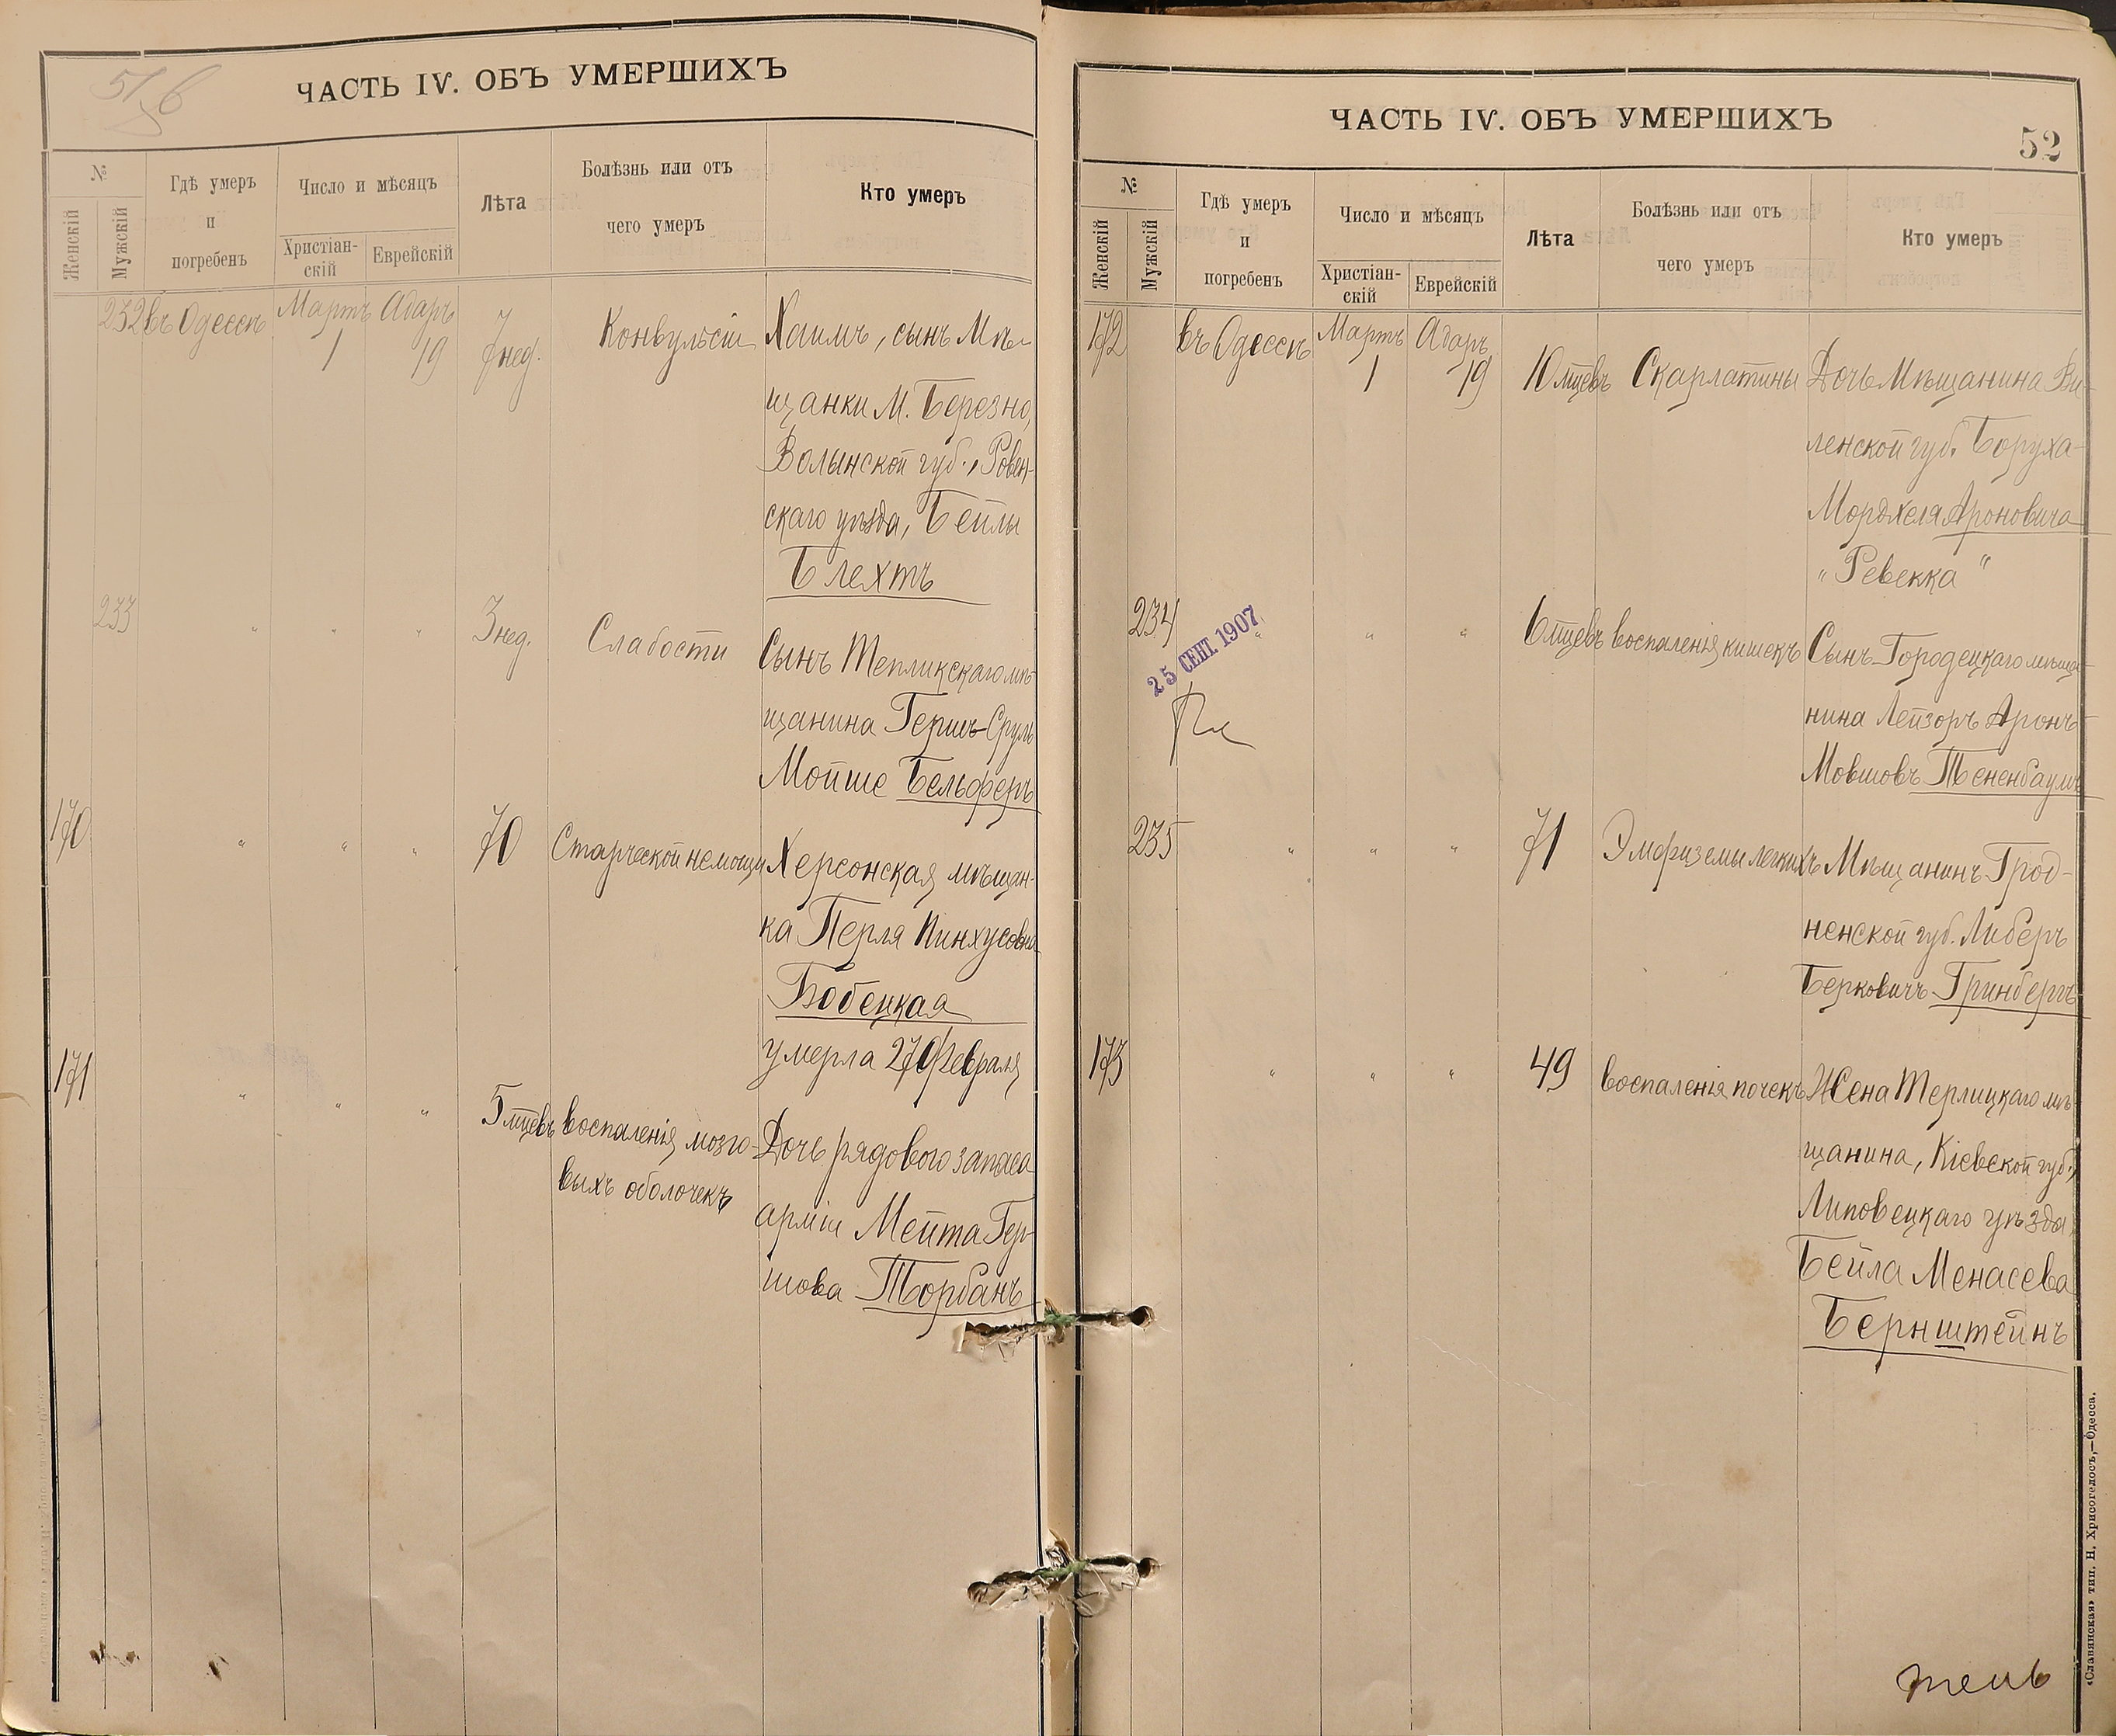 51 б
ЧАСТЬ IV. ОБЪ УМЕРШИХЪ
№
Женскій
Мужскій
Гдѣ умеръ
и
погребенъ
Число и мѣсяцъ
Христіан-
скій
Еврейскій
Лѣта
Болѣзнь или отъ
чего умеръ
Кто умеръ
232 въ Одессѣ Мартъ 1 Адаръ 19 7 нед. Конвульсіи Хаимъ, сынъ Мѣ-
щанки М. Березно,
Волынской губ., Ровен-
скаго уѣзда, Бейлы
Блехтъ
233 " " " 3 нед. Слабости Сынъ Тепликскаго мѣ-
щанина Гершъ-Сруль
Мойше Бельферъ
170 " " " 70 Старческой немощи Херсонская мѣщан-
ка Перля Пинхусовна
Бобецкая
умерла 27 Февраля
171 " " " 5 мцевъ воспаленія мозго- Дочь рядового запаса
выхъ оболочекъ
арміи Мейта Гер-
шова Торбанъ
ЧАСТЬ IV. ОБЪ УМЕРШИХЪ
52
№
Женскій
Мужскій
Гдѣ умеръ
и
погребенъ
Число и мѣсяцъ
Христіан-
скій
Еврейскій
Лѣта
Болѣзнь или отъ
чего умеръ
Кто умеръ
172 въ Одессѣ Мартъ 1 Адаръ 19 10 мцевъ Скарлатины Дочь Мѣщанина Ви-
ленской губ. Боруха-
Мордхеля Ароновича
"Ревекка"
234 " " " 6 мцевъ воспаленія кишекъ Сынъ Городецкаго мѣща-
25 СЕНТ. 1907
нина Лейзоръ Аронъ
Мовшовъ Тененбаумъ
235 " " " 71 Эмфиземы легкихъ Мѣщанинъ Грод-
ненской губ. Либеръ
Берковичъ Гринбергъ
173 " " " 49 воспаленія почекъ Жена Терлицкаго мѣ-
щанина, Кіевской губ.,
Липовецкаго уѣзда,
Бейла Менасева
Бернштейнъ
«Славянская» тип. Н. Хрисогелосъ,—Одесса.